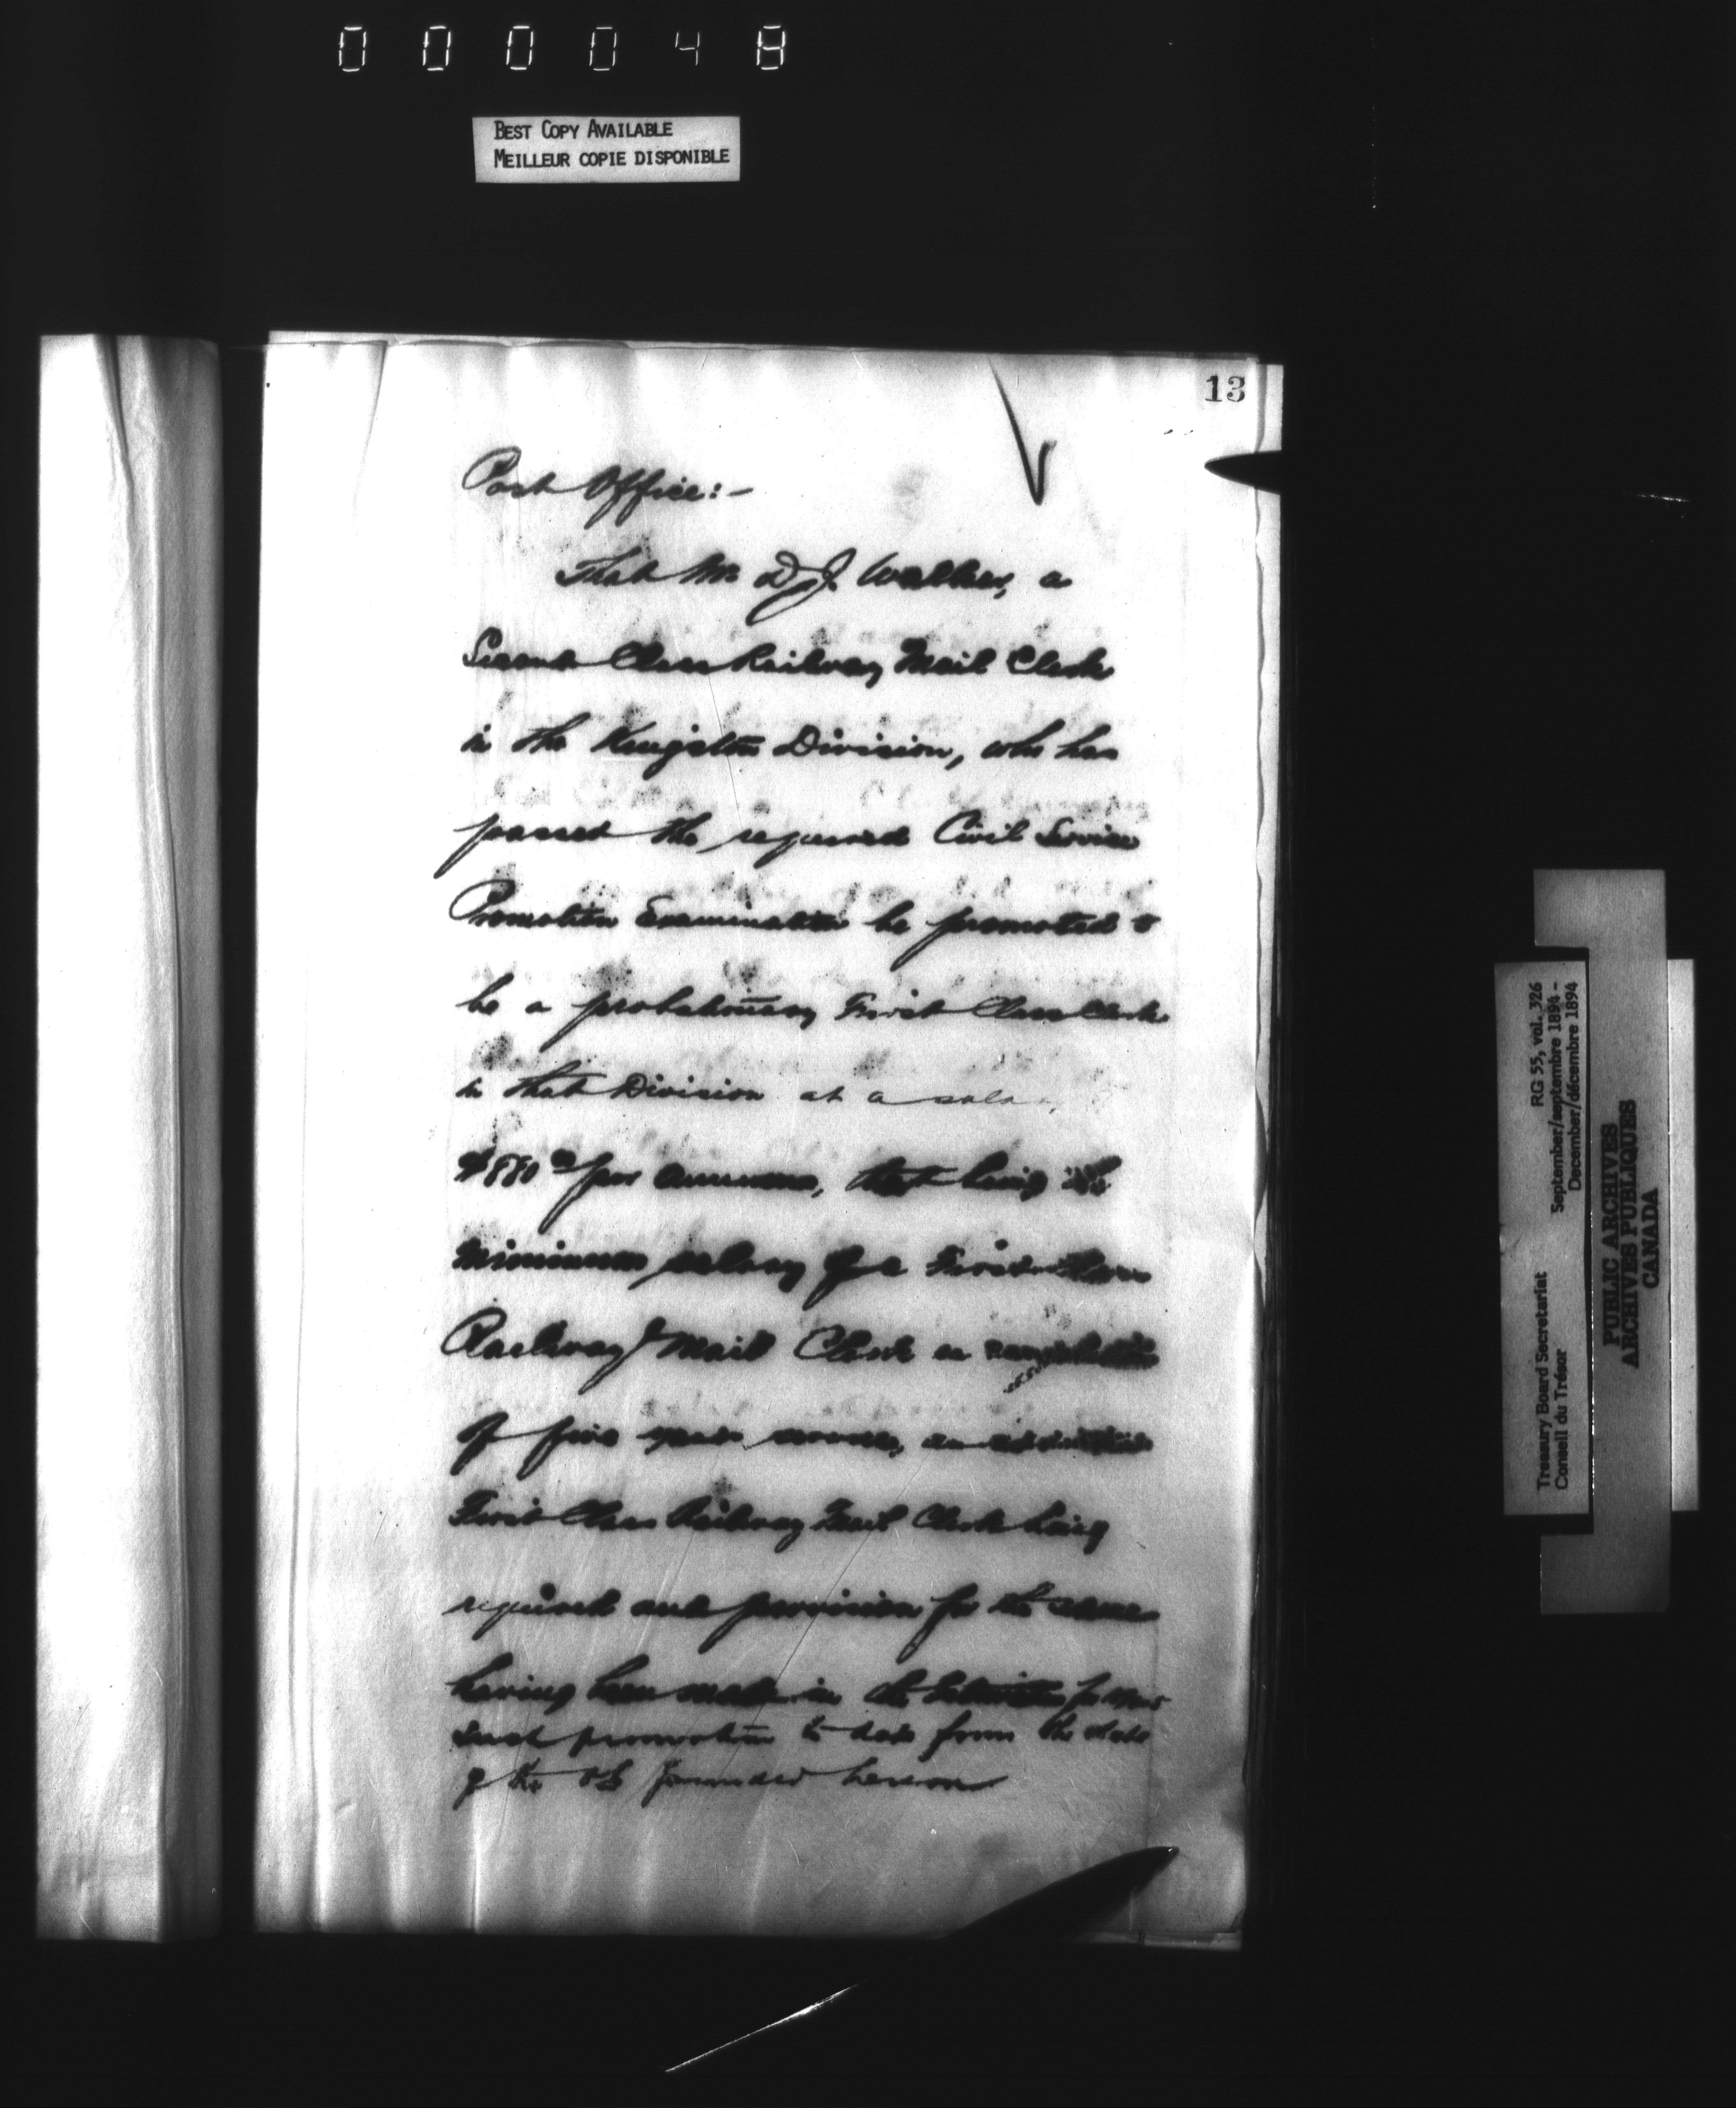 000048
BEST COPY AVAILABLE
MEILLEUR COPIE DISPONIBLE
13
Post Office:-
That Mr D. J. Walker, a
Second Class Railway Mail Clerk
in the Kingston Division, who has
passed the required Civil Service
Promotion Examination be promoted to
be a probationary First Class Clerk
in that Division at a
$880 00 per annum, that being the
minimum salary of a First Class
Railway Mail Clerk on
of five years service, an additional
First Class Railway Mail Clerk being
required and provision for the same
having been made in the Estimates for
such promotion to date from the date
of the founded hereon
RG 55, vol. 326
September/septembre 1894 -
December/décembre 1894
Treasury Board Secretariat
Conseil du Trésor
PUBLIC ARCHIVES
ARCHIVES PUBLIQUES
CANADA